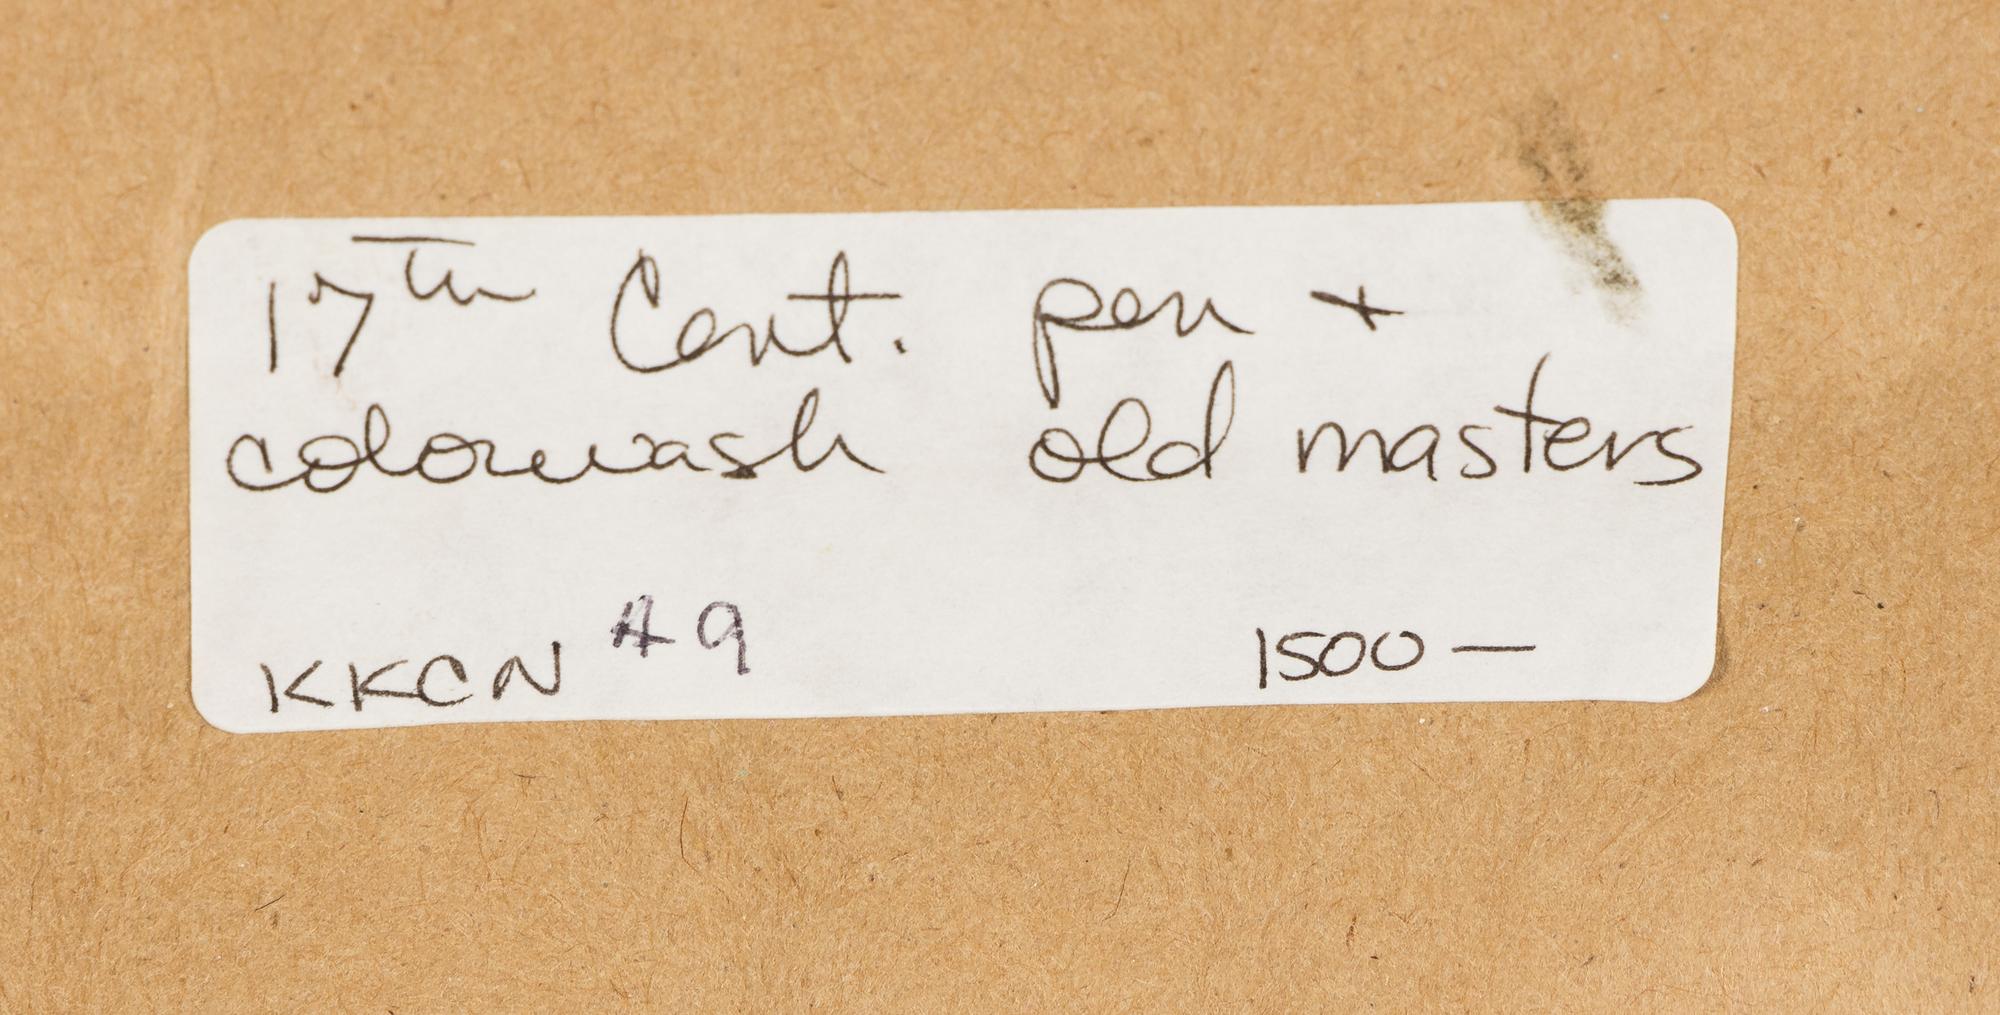 17th Cent. pen +
colorwash old masters
KKCN #9 1500 —